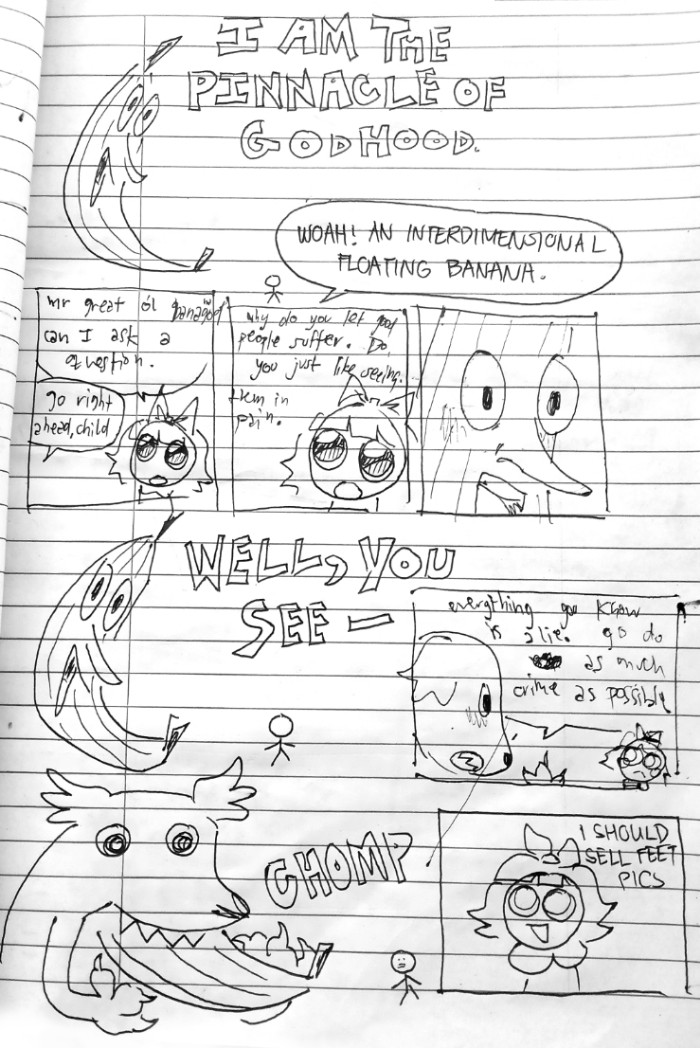 I AM THE
PINNACLE OF
GODHOOD.
WOAH! AN INTERDIMENSIONAL
FLOATING BANANA.
mr great ol banagod
can I ask a
question.
go right
ahead, child
why do you let good
people suffer. Do
you just like seeing
them in
pain.
WELL, YOU
SEE —
everything you know
is a lie. go do
as much
crime as possible
CHOMP
I SHOULD
SELL FEET
PICS